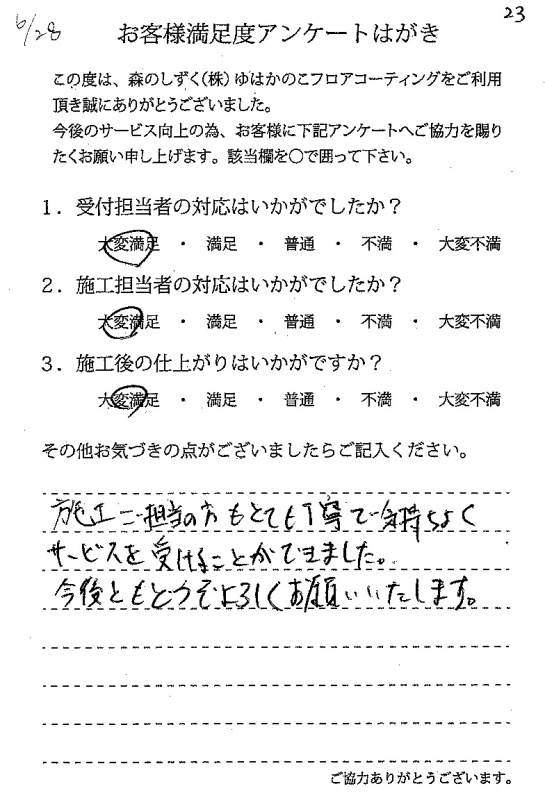 6/28
23
お客様満足度アンケートはがき
この度は、森のしずく(株)ゆはかのこフロアコーティングをご利用
頂き誠にありがとうございました。
今後のサービス向上の為、お客様に下記アンケートへご協力を賜り
たくお願い申し上げます。該当欄を○で囲って下さい。
1．受付担当者の対応はいかがでしたか？
大変満足 ・ 満足 ・ 普通 ・ 不満 ・ 大変不満
2．施工担当者の対応はいかがでしたか？
大変満足 ・ 満足 ・ 普通 ・ 不満 ・ 大変不満
3．施工後の仕上がりはいかがですか？
大変満足 ・ 満足 ・ 普通 ・ 不満 ・ 大変不満
その他お気づきの点がございましたらご記入ください。
施工ご担当の方もとても丁寧で気持ちよく
サービスを受けることができました。
今後ともどうぞよろしくお願いいたします。
ご協力ありがとうございます。